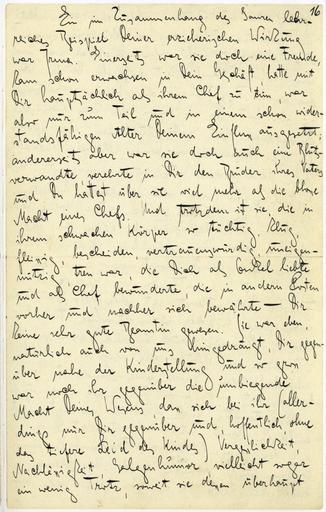 16
Ein im Zusammenhang des Ganzen lehr-
reiches Beispiel Deiner erzieherischen Wirkung
war Irma. Einerseits war sie doch eine Fremde,
kam schon erwachsen in Dein Geschäft, hatte mit
Dir hauptsächlich als ihrem Chef zu tun war
also nur zum Teil und in einem schon wider-
standsfähigen Alter Deinem Einfluss ausgesetzt;
andererseits aber war sie doch auch eine Bluts-
verwandte verehrte in Dir den Bruder ihres Vaters
und Du hattest über sie viel mehr als die blosse
Macht eines Chefs. Und trotzdem ist sie die in
ihrem schwachen Körper so tüchtig, klug
fleissig, bescheiden, vertrauenswürdig uneigen-
nützig, treu war, die Dich als Onkel liebte
und als Chef bewunderte, die in andern Posten
vorher und nachher sich bewährte – Dir
keine sehr gute Beamtin gewesen. Sie war eben,
natürlich auch von uns hingedrängt, Dir gegen-
über nahe der Kinderstellung und so gross
war noch ihr gegenüber die umbiegende
Macht Deines Wesens dass sich bei ihr (aller-
dings nur Dir gegenüber und hoffentlich ohne
das tiefere Leid des Kindes) Vergesslichkeit,
Nachlässigkeit, Galgenhumor vielleicht sogar
ein wenig Trotz, soweit sie dessen überhaupt